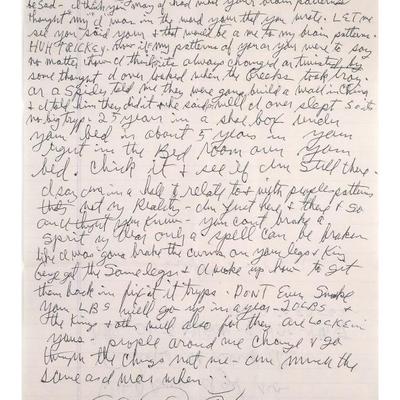 be sad - I think you may of had more your brain patterns
thought my I was in the word your that you wrote. LET me
see you said your & that would be a me to my brain patterns -
HUH TRICKEY. Now if my patterns of you are you were to say
no matter how I think its always changed or twisted by
some thought I over looked when the Greeks took Troy.
or a spider told me they were gong build a wall in China
& I told him they did it & he said well I over slept so its
no big tryp. 25 years in a shoe box under
your bed in about 5 years in your
right in the Bed room over your
bed. Chick it & see if Im still there.
in a hell I relate to & with people patterns
not my Reality - Im just here & there & go
you know - you cant brake a
spirit only a spell can be broken
like I was gona brake the on your legs & King
the same legs & I woke up how to get
them back in it tryps - DONT Ever Smoke
your LBS will go up in a year - 20 LBS &
the Kings & other will also for they are LOCKEN
yours - people around me change & go
through the changes not me - am much the
same as I was when